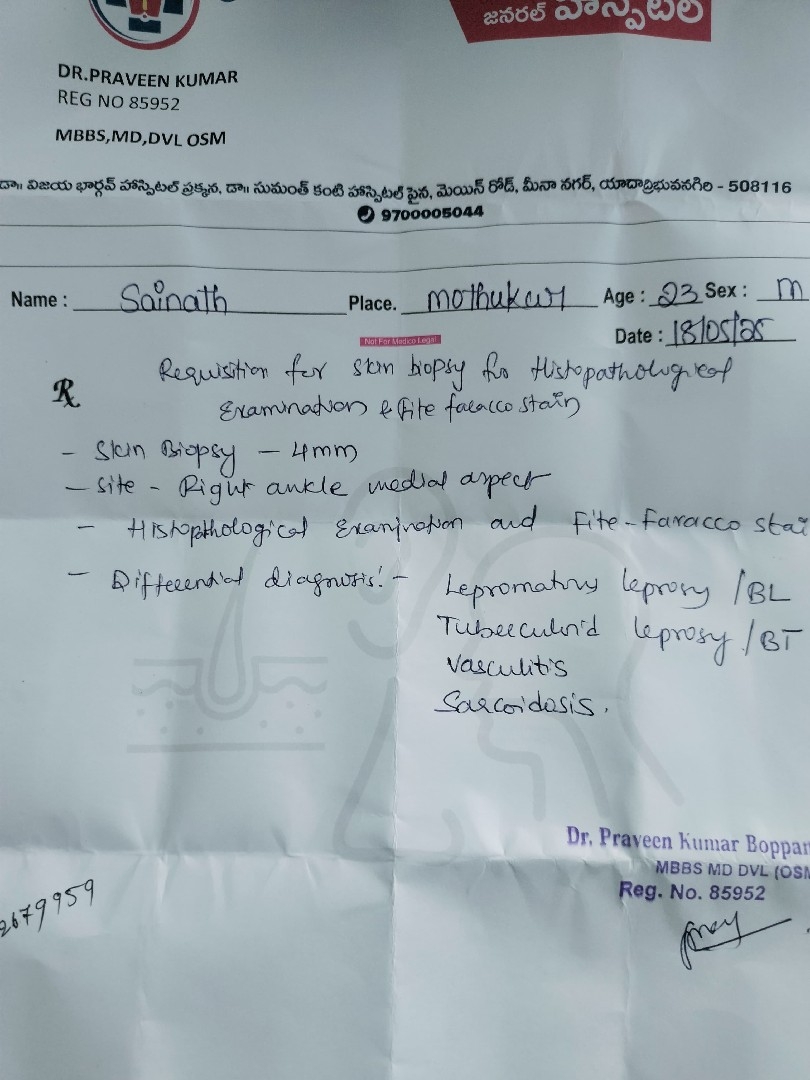 జనరల్ హాస్పిటల్
DR.PRAVEEN KUMAR
REG NO 85952
MBBS,MD,DVL OSM
డా॥ విజయ భార్గవ్ హాస్పిటల్ ప్రక్కన, డా॥ సుమంత్ కంటి హాస్పిటల్ పైన, మెయిన్ రోడ్, మీనా నగర్, యాదాద్రిభువనగిరి - 508116
9700005044
Name : Sainath Place. mothukur Age : 23 Sex : M
Date : 18/05/25
Not For Medico Legal
Rx Requisition for skin biopsy for Histopathological
Examination & Fite faracco stain
- Skin Biopsy - 4mm
- Site - Right ankle medial aspect
- Histopthological Examination and Fite-Faracco stai
- Differential diagnosis:- Lepromatous leprosy /BL
Tuberculoid leprosy /BT
Vasculitis
Sarcoidosis.
Dr. Praveen Kumar Boppar
MBBS MD DVL (OSM
Reg. No. 85952
2679959